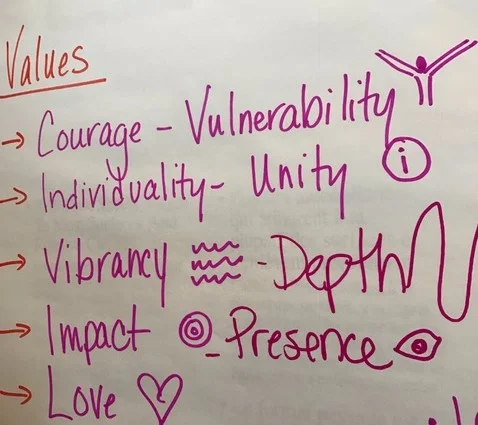 Values
→ Courage - Vulnerability
→ Individuality - Unity i
→ Vibrancy - Depth
→ Impact - Presence
→ Love